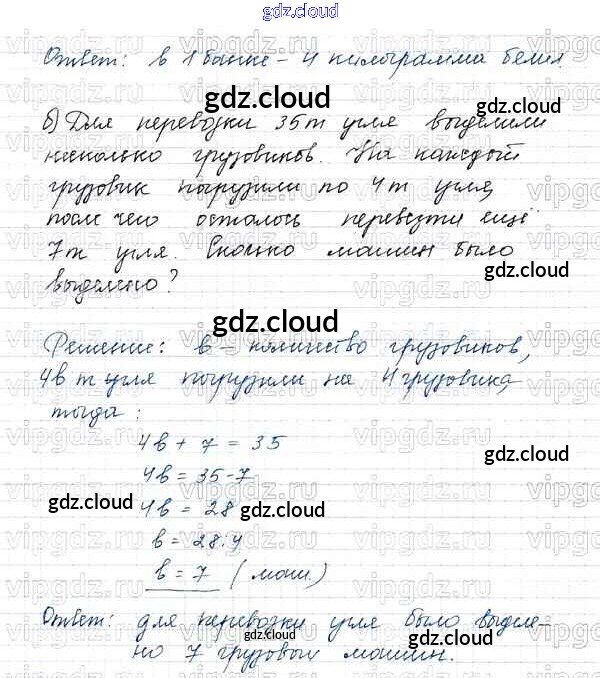 gdz.cloud
Ответ: в 1 банке - 4 килограмма белил.
gdz.cloud
б) Для перевозки 35 т угля выделили
несколько грузовиков. На каждый
грузовик погрузили по 4 т угля,
после чего осталось перевезти ещё
7 т угля. Сколько машин было
gdz.cloud
выделено?
gdz.cloud
Решение: в - количество грузовиков,
4в т угля погрузили на 4 грузовика,
тогда:
4в + 7 = 35
gdz.cloud
4в = 35-7
gdz.cloud
4в = 28
gdz.cloud
в = 28:4
в = 7 (маш.)
Ответ: для перевозки угля было выделе-
gdz.cloud
но 7 грузовых машин.
gdz.cloud